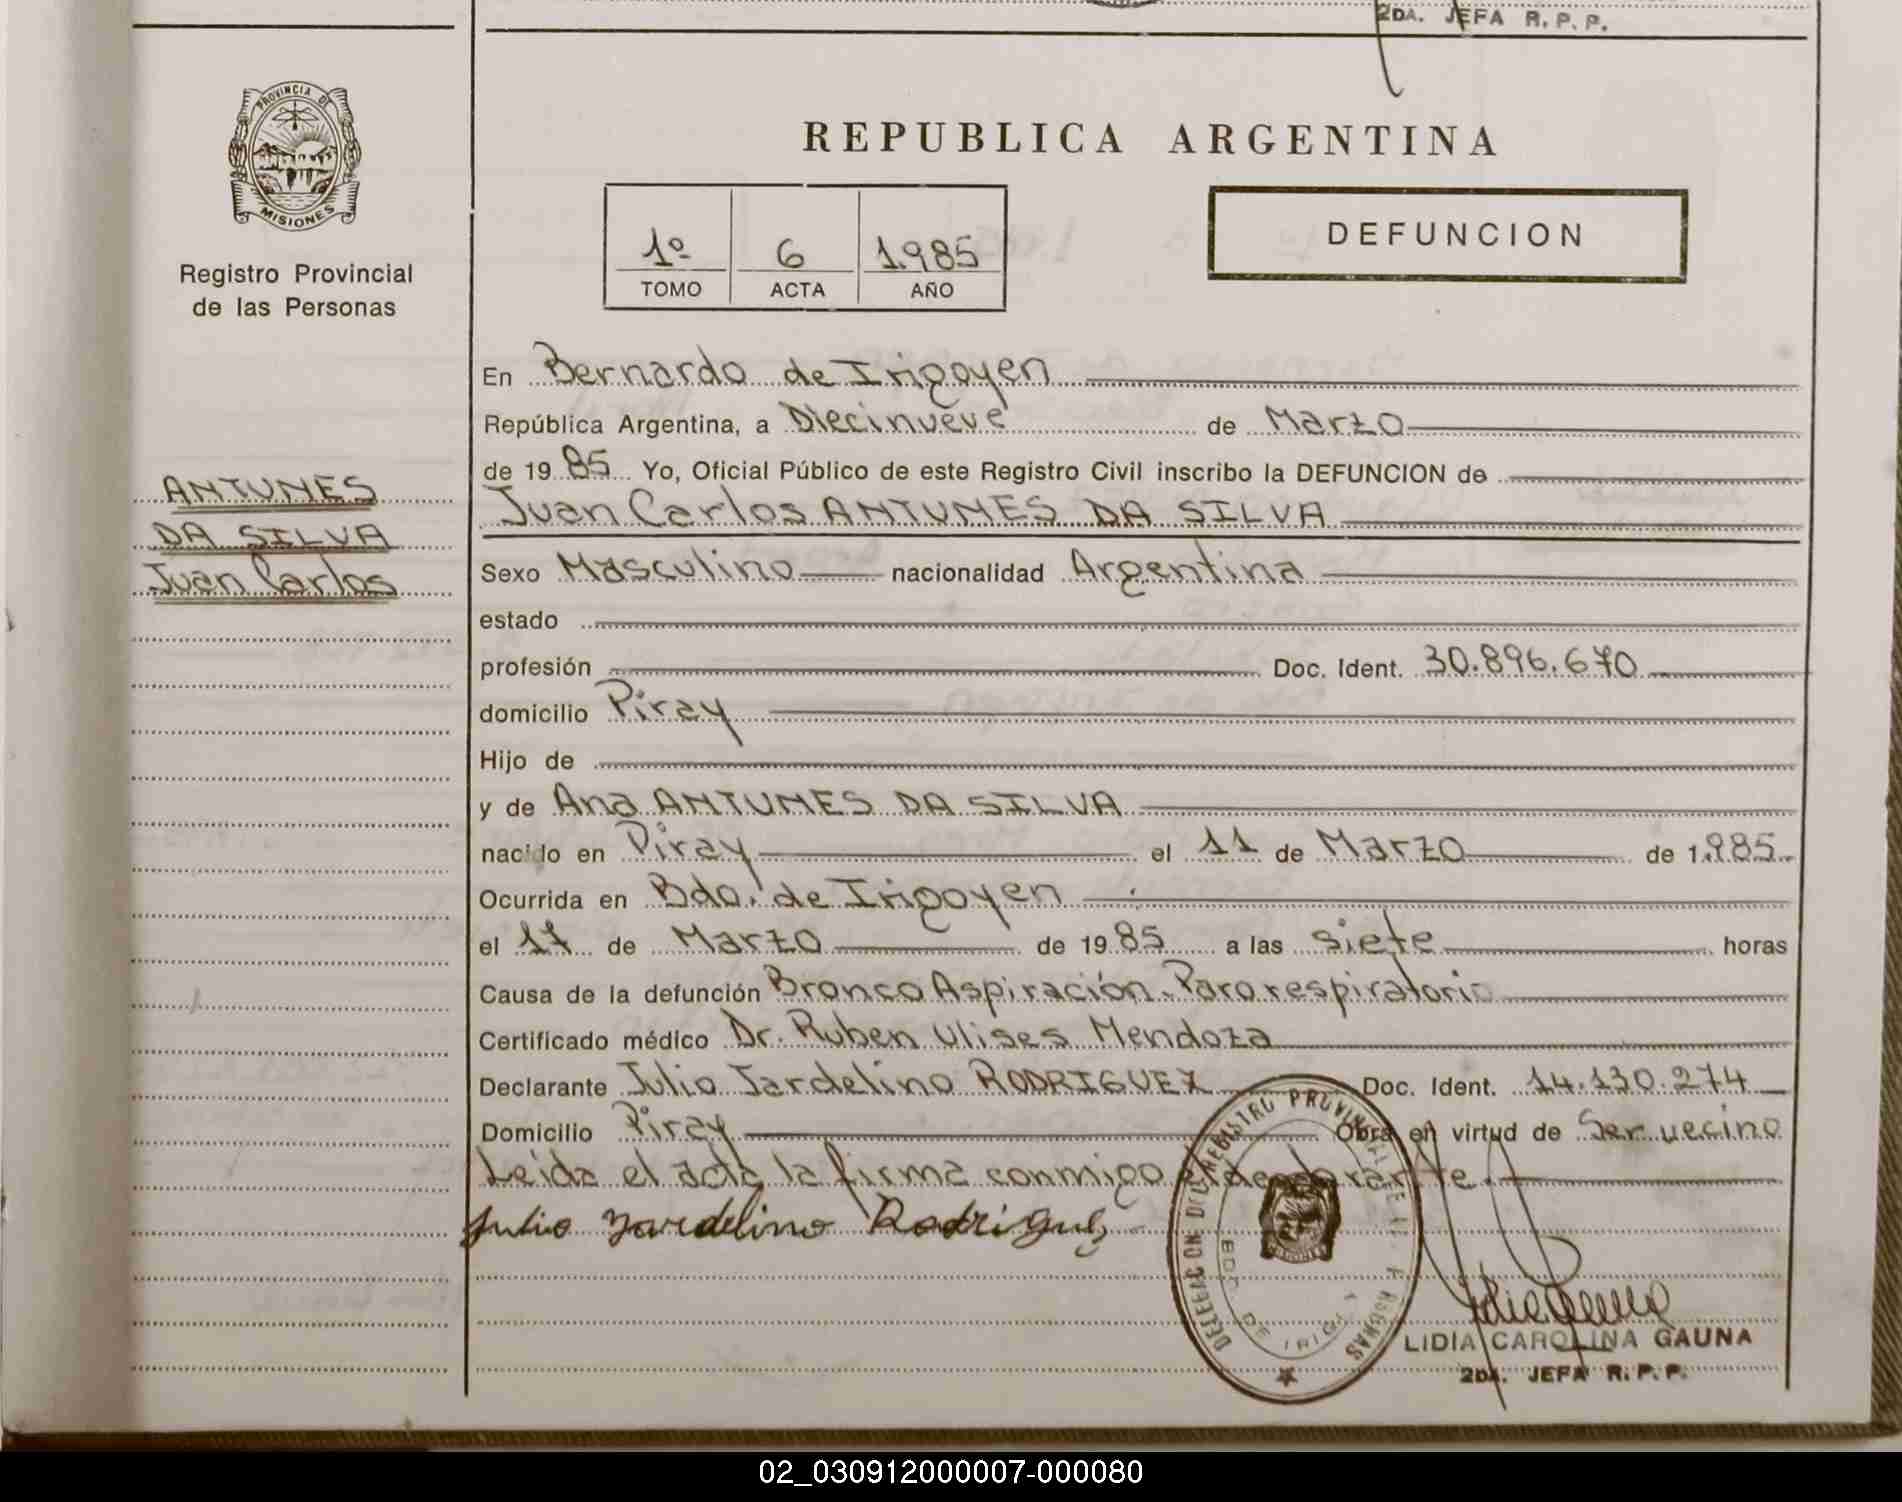 2DA. JEFA R.P.P.
PROVINCIA DE
MISIONES
Registro Provincial
de las Personas
REPUBLICA ARGENTINA
1º 6 1.985
TOMO ACTA AÑO
DEFUNCION
ANTUNES
DA SILVA
Juan Carlos
En Bernardo de Irigoyen
República Argentina, a Diecinueve de Marzo
de 1985 Yo, Oficial Público de este Registro Civil inscribo la DEFUNCION de
Juan Carlos ANTUNES DA SILVA
Sexo Masculino nacionalidad Argentina
estado
profesión Doc. Ident. 30.896.670
domicilio Piray
Hijo de
y de Ana ANTUNES DA SILVA
nacido en Piray el 11 de Marzo de 1.985
Ocurrida en Bdo. de Irigoyen
el 17 de Marzo de 1985 a las siete horas
Causa de la defunción Bronco Aspiración. Paro respiratorio
Certificado médico Dr. Ruben Ulises Mendoza
Declarante Julio Jardelino RODRIGUEZ Doc. Ident. 14.130.274
Domicilio Piray Obra en virtud de Ser vecino
Leída el acta la firma conmigo el declarante.
Julio Jardelino Rodriguez
DELEGACION DEL REGISTRO PROVINCIAL DE LAS PERSONAS
BDO. DE IRIGOYEN
LIDIA CAROLINA GAUNA
2DA. JEFA R.P.P.
02_030912000007-000080